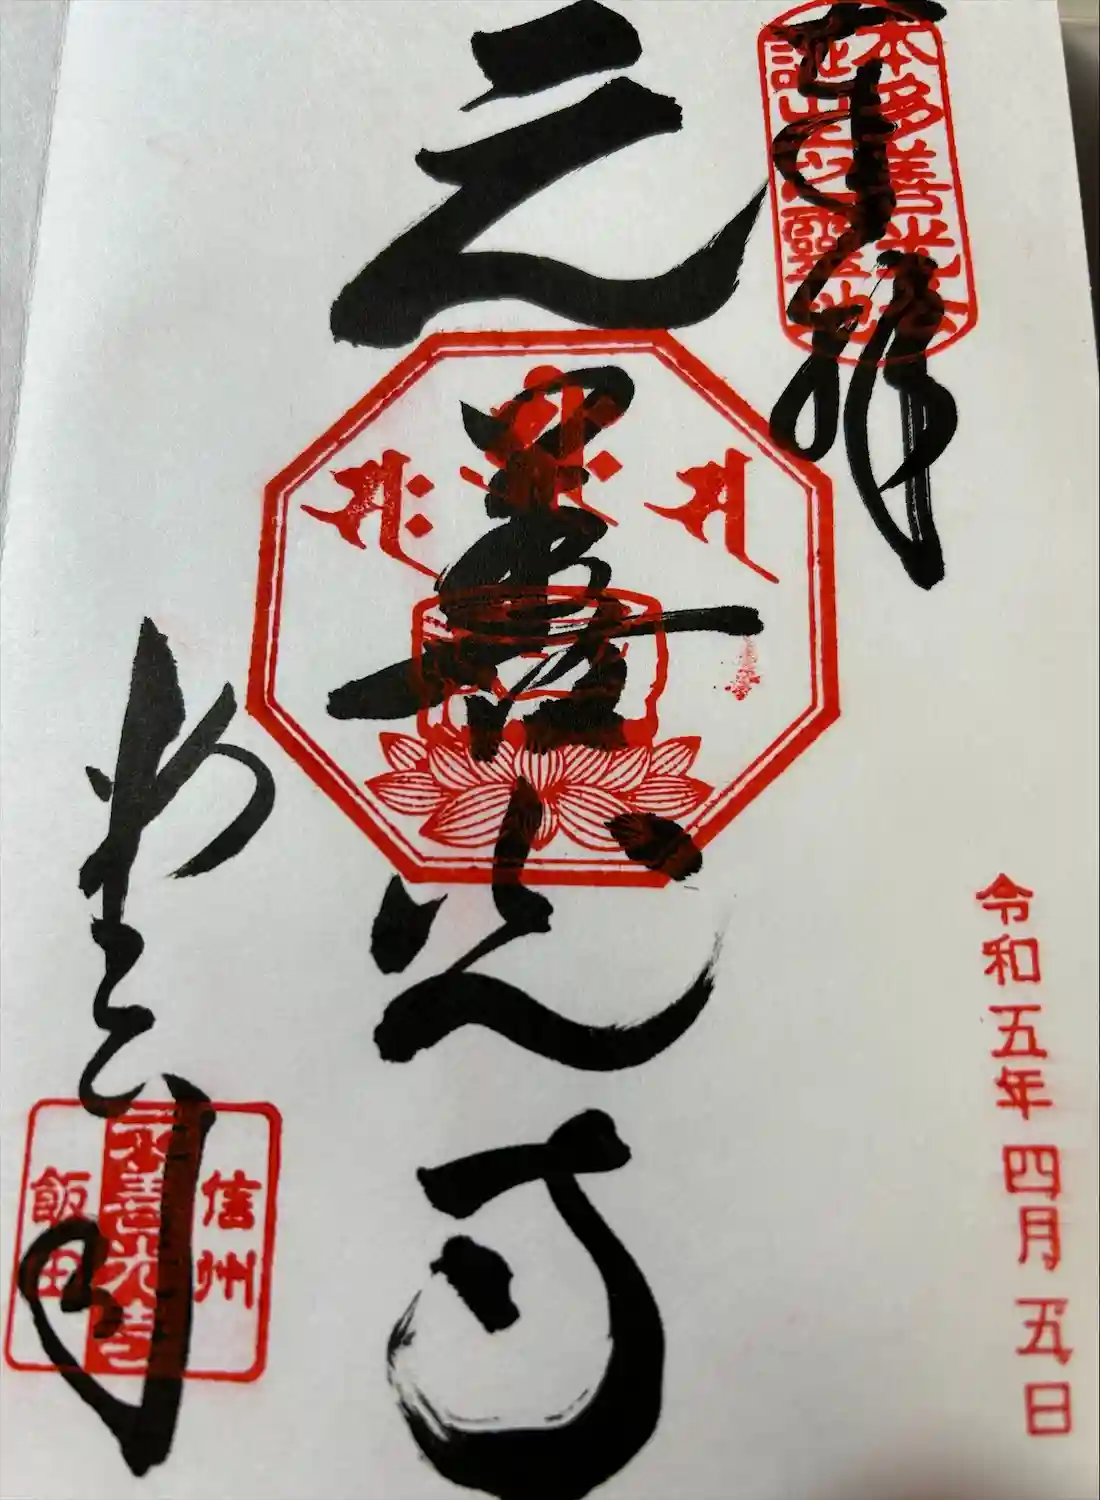 奉拝
本多善光公
誕生之霊地
元善光寺
令和五年四月五日
信州
元善光寺
飯田